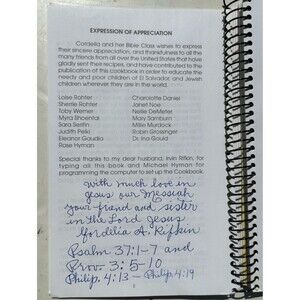 EXPRESSION OF APPRECIATION
Cordelia and her Bible Class wishes to express
their sincere appreciation, and thankfulness to all the
many friends from all over the United States that have
gladly sent their recipes, and have contributed to the
publication of this Cookbook in order to educate the
needy and poor children of El Salvador, and Jewish
children wherever they are in the world.
Loise Rohter
Sherrie Rohter
Toby Werner
Myra Shoental
Sara Serifin
Judith Pelki
Eleanor Gaudia
Rose Hyman
Charolotte Daniel
Janet Noe
Nellie DeMeter
Mary Samburn
Millie Murdock
Robin Grossinger
Dr. Ina Gould
Special thanks to my dear husband, Irvin Rifkin, for
typing all this book and Michael Hyman for
programming the computer to set up the Cookbook.
with much love in
Jesus our Messiah
your friend and sister
in the Lord Jesus
Cordelia A. Rifkin
Psalm 37:1-7 and
Prov. 3:5-10
Philip. 4:13 - Philip. 4:19